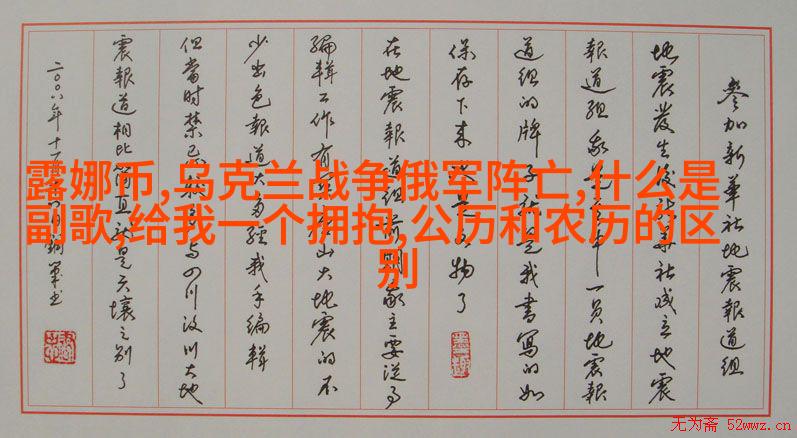 參加新華社地震報道組
地震發生後新華社成立地震
報道組 一員地震報
道組的牌子就是我書寫的如
保存下來 物了
在地震報道組前期我主要從事
編輯工作有 山大地震的不
少出色報道大多經我手編輯
但當時禁忌 與四川汶川大地
震報道相比 直就是天壤之別了
二〇〇八年十一月 筆书
露娜币,乌克兰战争俄军阵亡,什么是
副歌,给我一个拥抱,公历和农历的区
别
无为斋 52wwz.cn